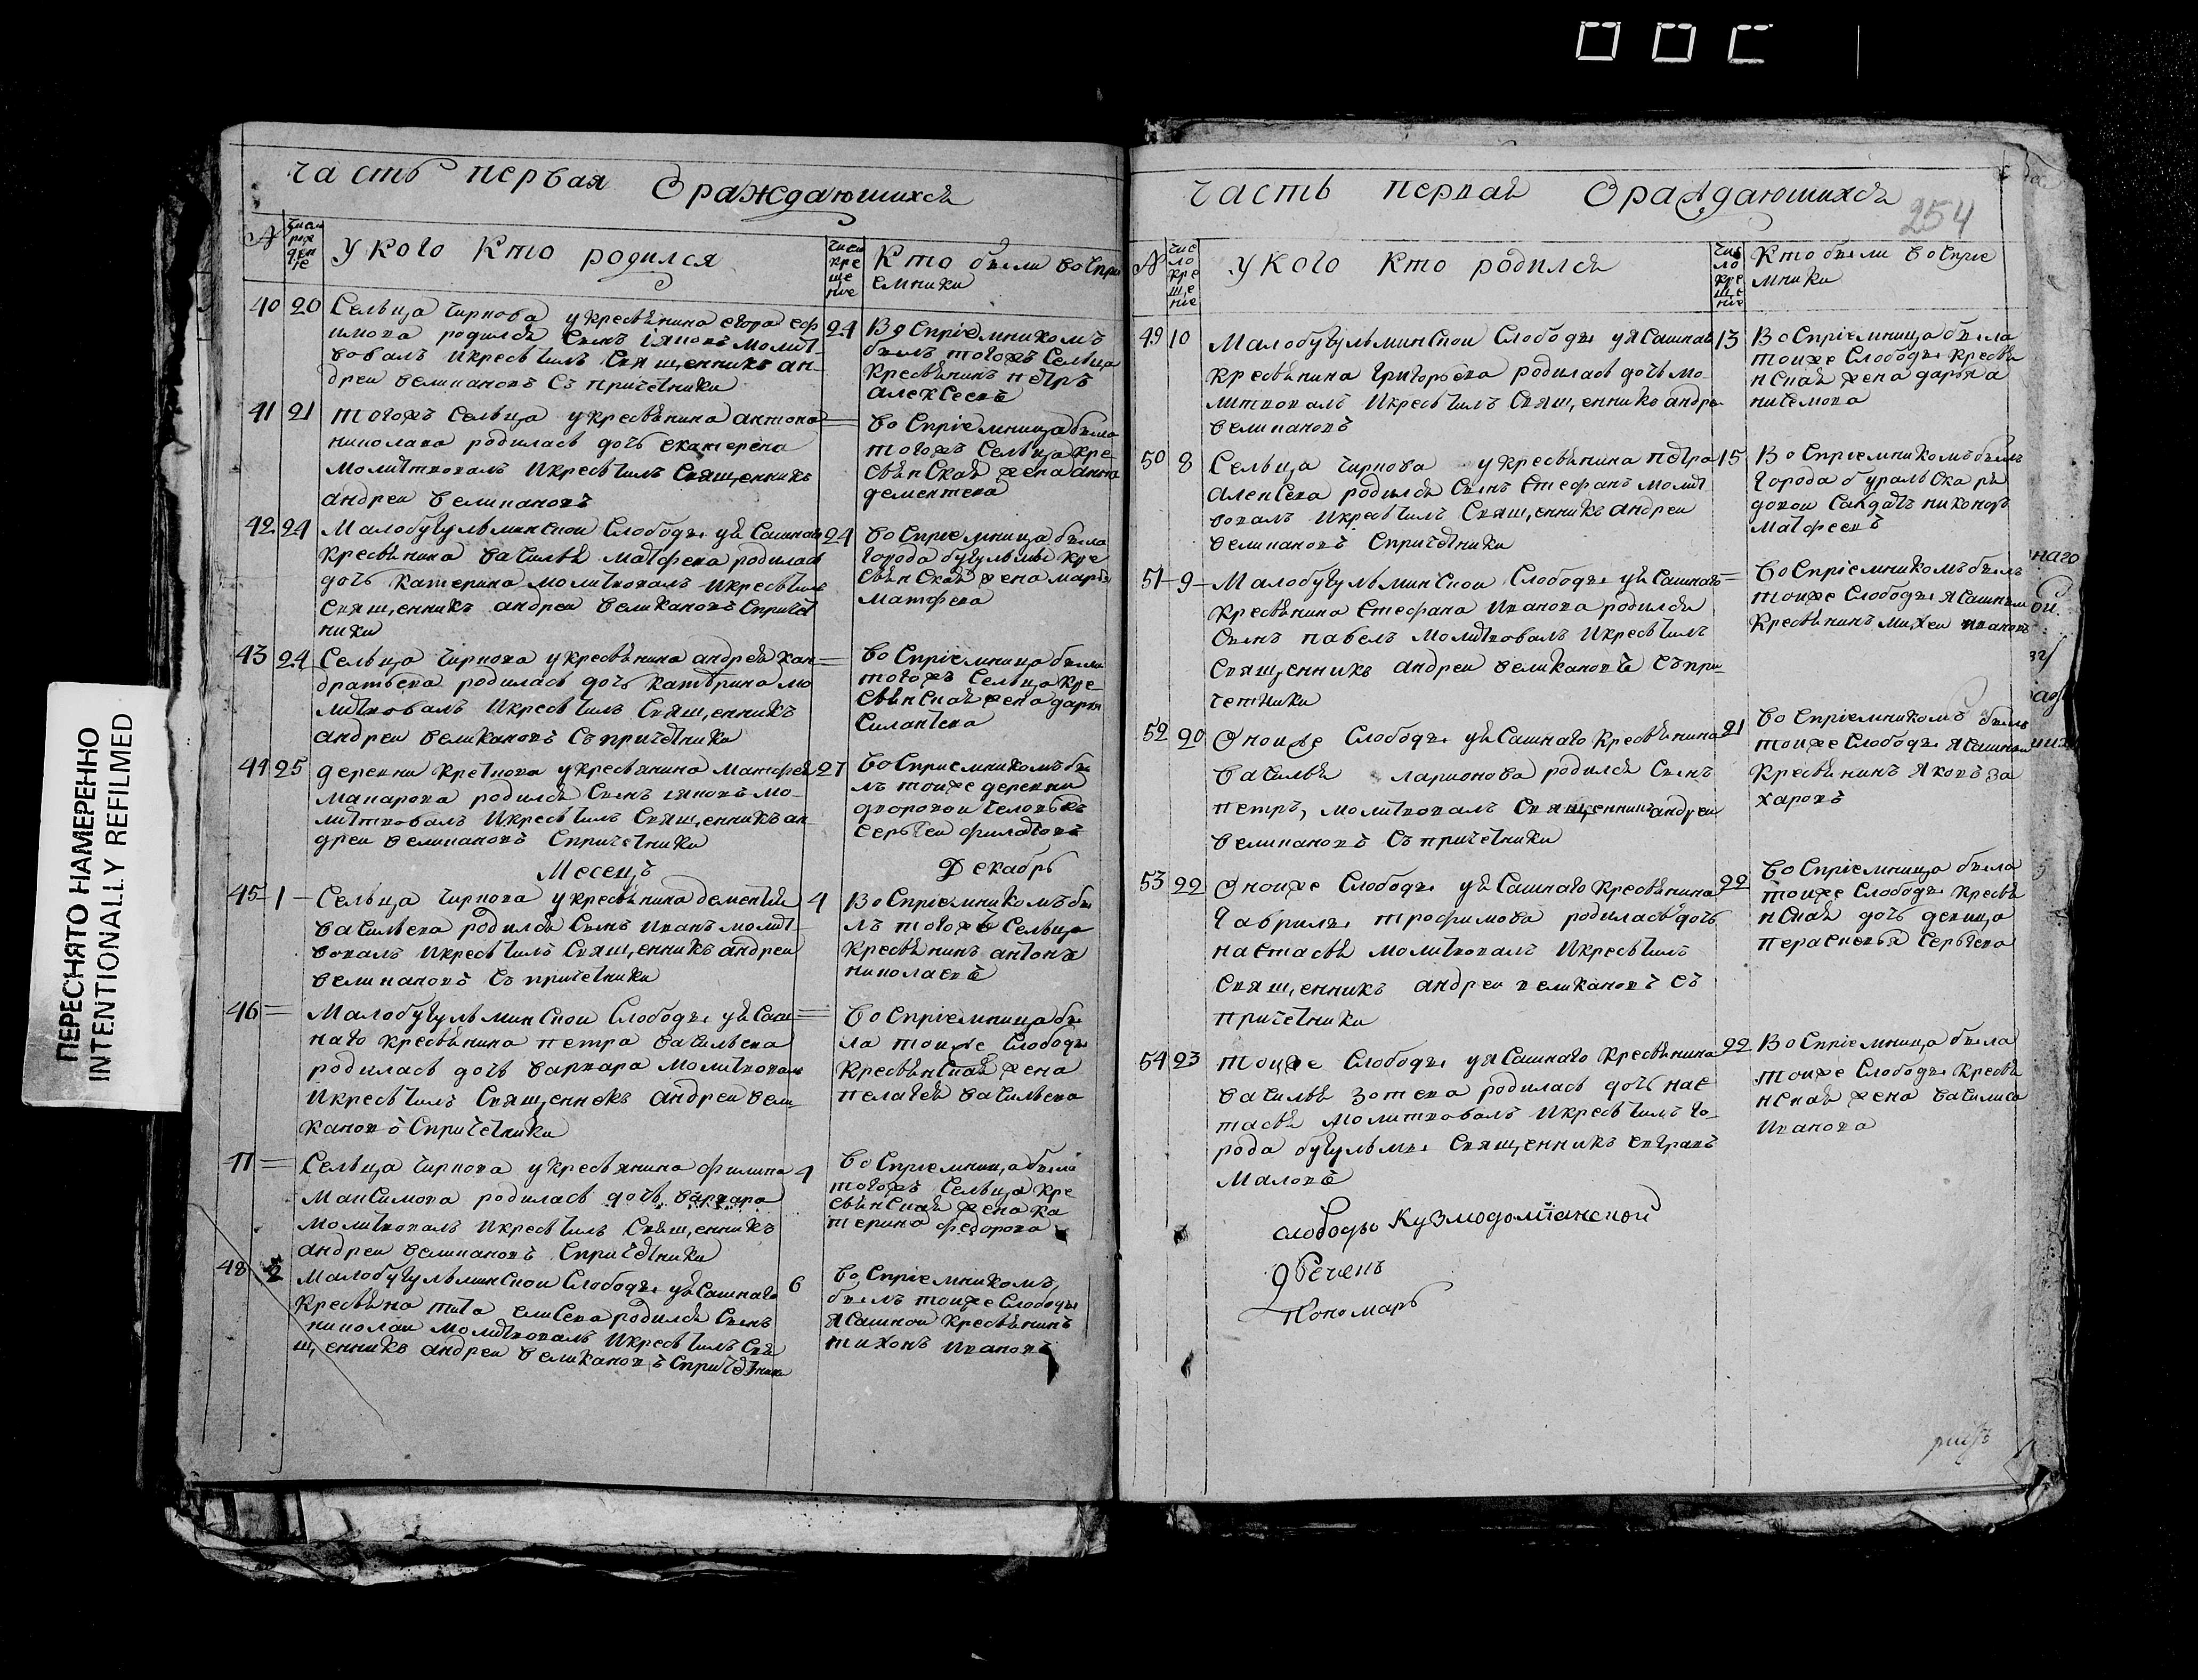 ПЕРЕСНЯТО НАМЕРЕННО
INTENTIONALLY REFILMED
часть первая Ораждающихся
№
числ рож ден ие
у кого кто родился
число кре ще ние
Кто были воспри
емники
40 20 Сельца Чиркова у крестьянина егора еф 24
имова родился сынъ іяковъ молит
вовалъ и крестилъ священникъ ан
дреи великановъ съ причетники
Восприемникомъ
былъ тогожъ Сельца
крестьянинъ петръ
алексеевъ
41 21 тогожъ Сельца у крестьянина антона =
николаева родилась дочь екатерена
молитвовалъ и крестилъ священникъ
андреи великановъ
Восприемница была
тогожъ Сельца кре
стьянская жена анна
дементева
42 24 Малобугульминскои Слободы у ясашнаго 24
крестьянина василья матфева родилас
дочь катерина молитвовалъ и крестилъ
священникъ андреи великановъ с причет
ники
Восприемница была
города бугульмы кре
стьянская жена марья
матфева
43 24 Сельца Чиркова у крестьянина андрея кон =
дратьева родилась дочь катерина мо
литвовалъ и крестилъ священникъ
андреи великановъ съ причетники
Восприемница была
тогожъ Сельца кре
стьянская жена дарья
силантева
44 25 деревни кретнова у крестьянина матфея 27
макарова родился сынъ іяковъ мо
литвовалъ и крестилъ священникъ ан
дреи великановъ с причетники
Восприемникомъ бы
лъ тоиже деревни
дворовои человекъ
сергеи филатовъ
Месецъ Декабрь
45 1 Сельца Чиркова у крестьянина дементия 4
васильева родился сынъ иванъ молит
вовалъ и крестилъ священникъ андреи
великановъ съ причетники
Восприемникомъ бы
лъ тогожъ Сельца
крестьянинъ антонъ
николаевъ
46 = Малобугульминскои Слободы у ясаш =
наго крестьянина петра васильева
родилась дочь варвара молитвовалъ
и крестилъ священнекъ андреи вели
кановъ с причетники
Восприемница бы
ла тоиже Слободы
крестьянская жена
пелагея васильева
47 = Сельца Чиркова у крестьянина филипа 4
максимова родилась дочь варвара
молитвовалъ и крестилъ священникъ
андреи великановъ с причетники
Восприемница была
тогожъ Сельца кре
стьянская жена ка
терина федорова
48 2 Малобугульминскои Слободы у ясашнаго 6
крестьяна тита елисева родился сынъ
николаи молитвовалъ и крестилъ свя
щенникъ андреи великановъ с причетники
Восприемникомъ
былъ тоиже Слободы
ясашнои крестьянинъ
тихонъ ивановъ
часть первая Ораждающихся
254
№
чис ло кре ще ние
у кого кто родился
чис ло кре ще ние
Кто были восприе
мники
49 10 Малобугульминскои Слободы у ясашнаго 13
крестьянина григорьева родилась дочь мо
литвовалъ и крестилъ священникъ андреи
великановъ
Восприемница была
тоиже Слободы крестья
нская жена дарья
50 8 Сельца Чиркова у крестьянина петра 15
алексева родился сынъ стефанъ молит
вовалъ и крестилъ священникъ андреи
великановъ с причетники
Восприемникомъ былъ
города бугульмы ря
довои салдатъ никоноръ
матфеевъ
51 9 Малобугульминскои Слободы у ясашнаго =
крестьянина стефана иванова родился
сынъ павелъ молитвовалъ и крестилъ
священникъ андреи великановъ съ при
четники
Восприемникомъ былъ
тоиже Слободы ясашныи
крестьянинъ михеи ивановъ
52 20 Оноиже Слободы у ясашнаго крестьянина 21
василья ларионова родился сынъ
петръ, молитвовалъ священникъ андреи
великановъ съ причетники
Восприемникомъ былъ
тоиже Слободы ясашнои
крестьянинъ яковъ за
харовъ
53 22 Оноиже Слободы у ясашнаго крестьянина 22
гаврилы трофимова родилась дочь
настасья молитвовалъ и крестилъ
священникъ андреи великановъ съ
причетники
Восприемница была
тоиже Слободы крестья
нская дочь девица
перасковья сергеева
54 23 тоиже Слободы у ясашнаго крестьянина 22
василья зотева родилась дочь нас
тасья молитвовалъ и крестилъ го
рода бугульмы священникъ евграфъ
Маловъ
Восприемница была
тоиже Слободы крестья
нская жена василиса
иванова
слободы Кузмодомианской
Пономарь